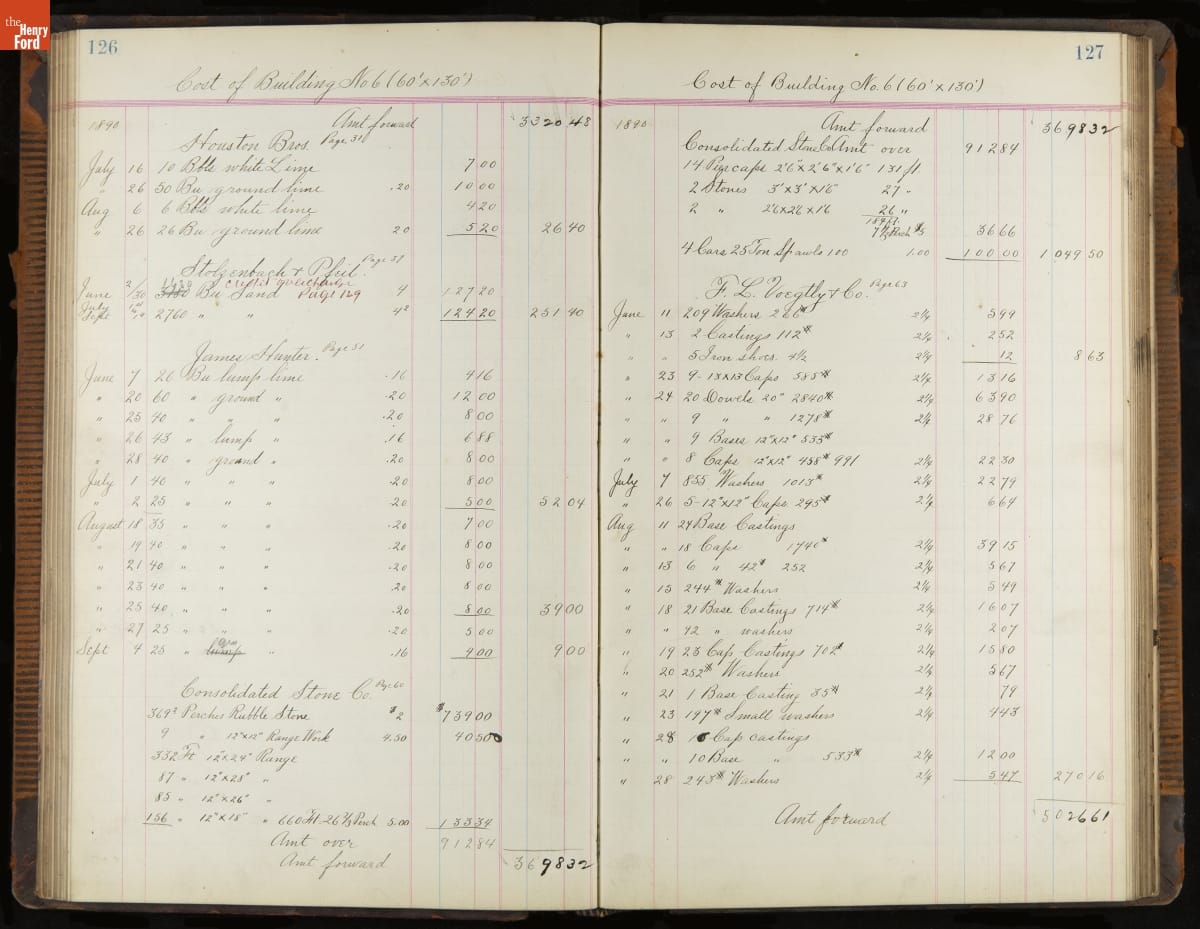 the
Henry
Ford
126
Cost of Building No 6 (60' x 130')
1890 Amt forward 3320 48
Houston Bros. Page 31
July 16 10 Bbls white Lime 7 00
" 26 50 Bu ground lime .20 10 00
Aug 6 6 Bbls white lime 4 20
" 26 26 Bu ground lime 20 5 20 26 40
Stolzenbach & Pfeil. Page 31
credit overcharge
June 2/30 3180 Bu Sand Page 129 4 127 20
Sept 2760 " " 4½ 124 20 251 40
James Hunter. Page 31
June 7 26 Bu lump lime .16 4 16
" 20 60 " ground " .20 12 00
" 25 40 " " " .20 8 00
" 26 43 " lump " .16 6 88
" 28 40 " ground " .20 8 00
July 1 40 " " " .20 8 00
" 2 25 " " " .20 5 00 52 04
August 18 35 " " " .20 7 00
" 19 40 " " " .20 8 00
" 21 40 " " " .20 8 00
" 23 40 " " " .20 8 00
" 25 40 " " " .20 8 00 39 00
" 27 25 " " " .20 5 00
Sept 4 25 " lump " .16 4 00 9 00
Consolidated Stone Co. Page 60
369½ Perches Rubble Stone $2 $739 00
9 " 12"x12" Range Work 4.50 40 50
332 Ft 12"x24" Range
87 " 12"x28" "
85 " 12"x26" "
156 " 12"x18" " 660 Ft. 26⅔ Perch 5.00 133 34
Amt over 912 84
Amt forward 3698 32
127
Cost of Building No. 6 (60' x 130')
1890 Amt forward 3698 32
Consolidated Stone Co Amt over 912 84
14 Pier caps 2'6"x2'6"x1'6" 131 ft.
2 Stones 3'x3'x1'6" 27 "
2 " 2'6x2'6x1'6 26 "
7½ Perch $5 36 66
4 Cars 25 Ton Spawls 100 1.00 100 00 1049 50
F. L. Voegtly & Co. Page 63
June 11 209 Washers 266# 2¼ 5 99
" 13 2 Castings 112# 2¼ 2 52
" " 5 Iron shoes 4½ 2¼ 12 8 63
" 23 9-13x13 Caps 585# 2¼ 13 16
" 24 20 Dowels 20" 2840# 2¼ 63 90
" " 9 " " 1278# 2¼ 28 76
" " 9 Bases 12"x12" 533#
" " 8 Caps 12"x12" 458# 991 2¼ 22 30
July 7 855 Washers 1013# 2¼ 22 79
" 26 5-12"x12" Caps 295# 2¼ 6 64
Aug 11 24 Base Castings
" " 18 Caps 1740# 2¼ 39 15
" 13 6 " 42# 252 2¼ 5 67
" 15 244# Washers 2¼ 5 49
" 18 21 Base Castings 714# 2¼ 16 07
" " 92 " washers 2¼ 2 07
" 19 23 Cap Castings 702# 2¼ 15 80
" 20 252# Washers 2¼ 5 67
" 21 1 Base Casting 35# 2¼ 79
" 23 197# Small washers 2¼ 4 43
" 28 Cap castings
" 10 Base " 533# 2¼ 12 00
" 28 243# Washers 2¼ 5 47 270 16
Amt forward 5026 61